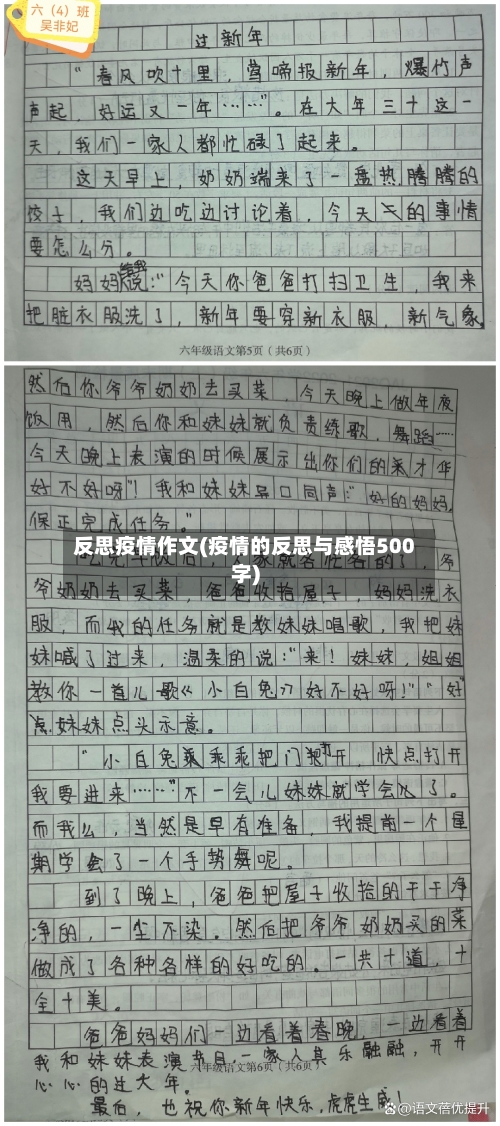 六（4）班
吴非妃
过新年
“春风吹十里，莺啼报新年，爆竹声
声起，好运又一年……”。在大年三十这一
天，我们一家人都忙碌了起来。
这天早上，奶奶端来了一盘热腾腾的
饺子，我们边吃边讨论着，今天的事情
要怎么分。
妈妈说：“今天你爸爸打扫卫生，我来
把脏衣服洗了，新年要穿新衣服，新气象。
六年级语文第5页（共6页）
然后你爷爷奶奶去买菜，今天晚上做年夜
饭用，然后你和妹妹就负责练歌，舞蹈……
今天晚上表演的时候展示出你们的才华
好不好呀”！我和妹妹异口同声：“好的妈妈，
保正完成任务。”
反思疫情作文(疫情的反思与感悟500
字)
爷奶奶去买菜，爸爸收拾屋子，妈妈洗衣
服，而我的任务就是教妹妹唱歌，我把妹
妹喊了过来，温柔的说：“来！妹妹，姐姐
教你一首儿歌《小白兔》好不好呀！”“好”
妹妹点头示意。
“小白兔乖乖把门打开，快点打开
我要进来……”不一会儿妹妹就学会了。
而我么，当然是早有准备，我提前一个星
期学会了一个手势舞呢。
到了晚上，爸爸把屋子收拾的干干净
净的，一尘不染。然后把爷爷奶奶买的菜
做成了各种各样的好吃的。一共十道，十
全十美。
爸爸妈妈们一边看着春晚，一边看着
我和妹妹表演节目，一家人其乐融融，开开
六年级语文第6页（共6页）
心心的过大年。
最后，也祝你新年快乐，虎虎生威！
@语文蓓优提升